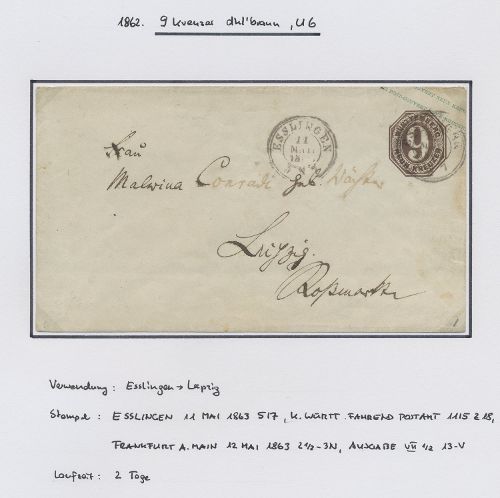 1862. 9 Kreuzer dkl'braun, U6
ESSLINGEN
11
MAI
9
Frau
Malwina Conradi geb.
Leipzig.
Roßmarkt
Verwendung: Esslingen → Leipzig
Stempel: ESSLINGEN 11 MAI 1863 5 17, K. WÜRTT. FAHREND POSTAMT 11 15 Z 18,
FRANKFURT A. MAIN 12 MAI 1863 2½-3N, AUSGABE VII ½ 13-V
Laufzeit: 2 Tage